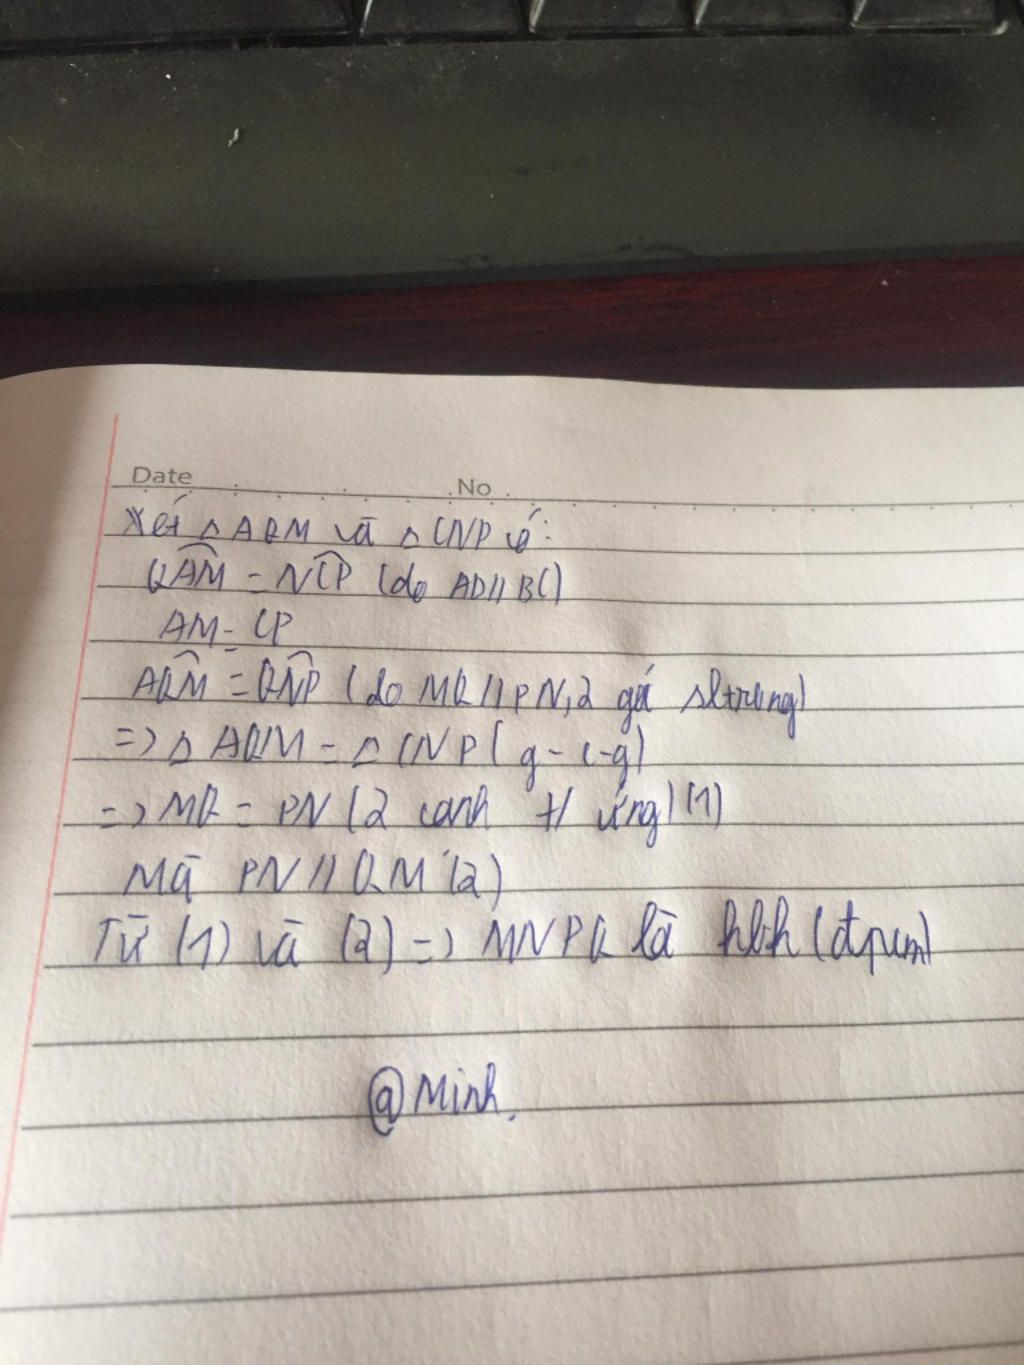 Date No
Xét △AQM và △CNP có:
QAM = NCP (do AD//BC)
AM = CP
AQM = QNP (do MQ//PN, 2 góc sltrong)
=> △AQM = △CNP (g-c-g)
=> MQ = PN (2 cạnh t/ ứng) (1)
Mà PN//QM (2)
Từ (1) và (2) => MNPQ là hbh (đpcm)
@Minh.